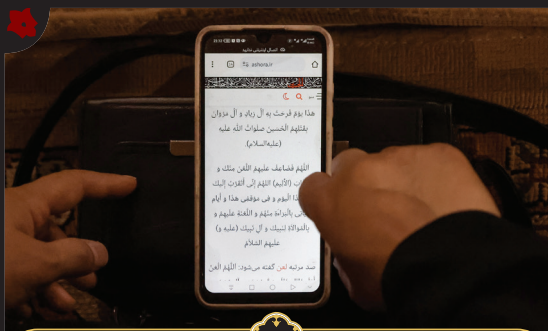 اتصال اینترنتی ندارید
ashora.ir
هذا يَومٌ فَرِحَت بِهِ آلُ زِيادٍ وَ آلُ مَروانَ
بِقَتلِهِمُ الحُسَينَ صَلَواتُ اللَّهِ عَلَيهِ
(عليه‌السلام).
اللَّهُمَّ فَضاعِف عَلَيهِمُ اللَّعنَ مِنكَ وَ
(الأَليمَ) اللَّهُمَّ إِنِّي أَتَقَرَّبُ إِلَيكَ
اليَومِ وَ في مَوقِفي هذا وَ أَيّامِ
بِالبَراءَةِ مِنهُم وَ اللَّعنَةِ عَلَيهِم وَ
بِالمُوالاةِ لِنَبِيِّكَ وَ آلِ نَبِيِّكَ (عَلَيهِ وَ)
عَلَيهِمُ السَّلامُ
صد مرتبه لعن گفته می‌شود: اللَّهُمَّ العَن